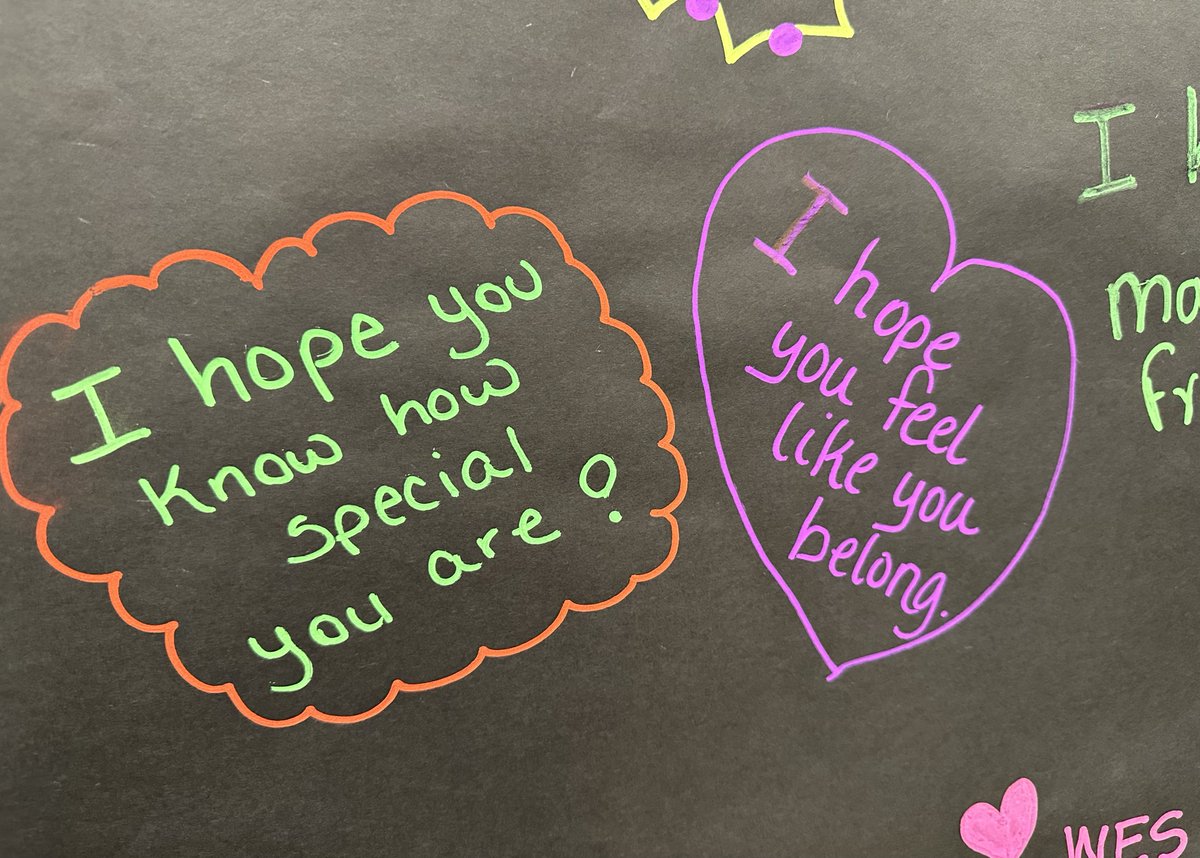 I hope you
know how
special
you are!
I hope
you feel
like you
belong.
I
WES